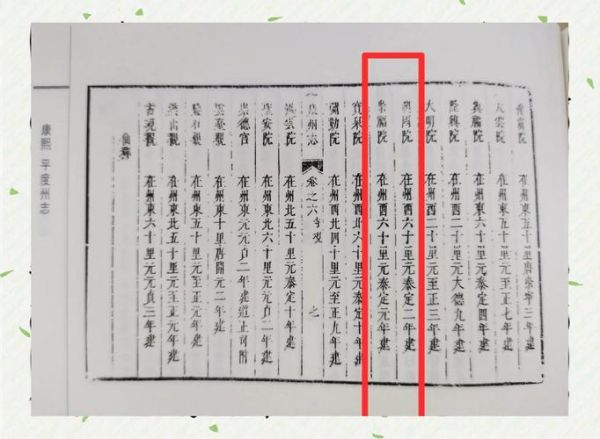 院 在州東五十里唐寧三年建
大雲院 在州東五十里元至正七年建
興福院 在州東六十里元泰定四年建
院 在州西二十里元大德九年建
大明院 在州西二十里元至正三年建
興國院 在州西六十里元泰定二年建
崇福院 在州西六十里元泰定元年建
寶泉院 在州西北六十里元泰定十年建
院 在州西北四十里元至正九年建
州志 卷之六 寺觀
雲院 在州北五十里元泰定十年建
安院 在州東北六十里元元貞二年建
崇德宮 在州東元元貞二年建道正司附
觀 在州東十里唐開元二年建
觀 在州東五十里元至正元年建
觀 在州東北五十里元至正元年建
古現觀 在州東六十里元元貞三年建
仙釋
康熙 平度州志